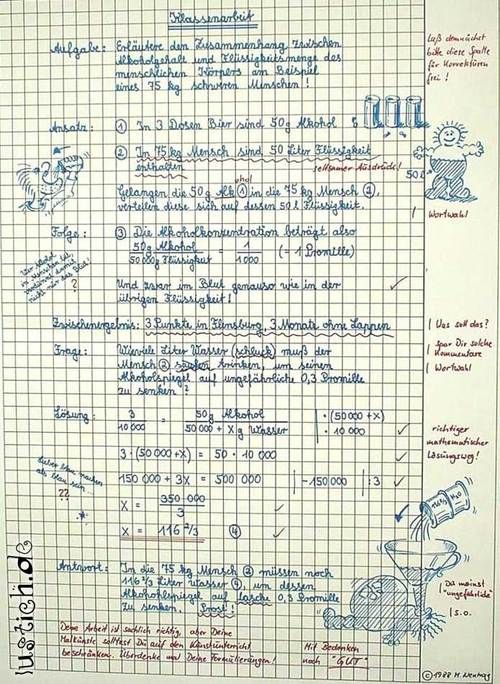 Klassenarbeit
Aufgabe: Erläutere den Zusammenhang zwischen
Alkoholgehalt und Flüssigkeitsmenge des
menschlichen Körpers am Beispiel
eines 75 kg schweren Menschen!
Laß demnächst
bitte diese Spalte
für Korrekturen
frei!
Ansatz: ① In 3 Dosen Bier sind 50g Alkohol
② In 75 kg Mensch sind 50 Liter Flüssigkeit
enthalten
seltsamer Ausdruck!
50 l
Gelangen die 50 g Alk ohol ① in die 75 kg Mensch ②,
verteilen diese sich auf dessen 50 l Flüssigkeit.
Wortwahl
Folge: ③ Die Alkoholkonzentration beträgt also
50g Alkohol / 50000g Flüssigkeit 1 / 1000 (= 1 Promille)
?
Und zwar im Blut genauso wie in der
übrigen Flüssigkeit!
Zwischenergebnis: 3 Punkte in Flensburg, 3 Monate ohne Lappen
Was soll das?
Spar Dir solche
Kommentare
Frage: Wieviele Liter Wasser (schluck) muß der
Mensch ② saufen trinken, um seinen
Alkoholspiegel auf ungefährliche 0,3 Promille
zu senken?
Wortwahl
Lösung: 3 / 10000 = 50g Alkohol / 50000 + x g Wasser | · (50000 + x) | · 10000
richtiger
mathematischer
Lösungsweg!
3 · (50000 + x) = 50 · 10000
150000 + 3x = 500000 | -150000 | :3
Lieber blau machen
als blau sein...
??
x = 350000 / 3
x = 116 2/3 ④
116 2/3 l
H₂O
Antwort: In die 75 kg Mensch ② müssen noch
116 2/3 Liter Wasser ④, um dessen
Alkoholspiegel auf lasche 0,3 Promille
zu senken. Prost!
Du meinst
"ungefährliche"
s.o.
Deine Arbeit ist sachlich richtig, aber Deine
Malkünste solltest Du auf den Kunstunterricht
beschränken. Überdenke mal Deine Formulierungen!
Mit Bedenken
noch "GUT"
© 1988 M.
lustich.de